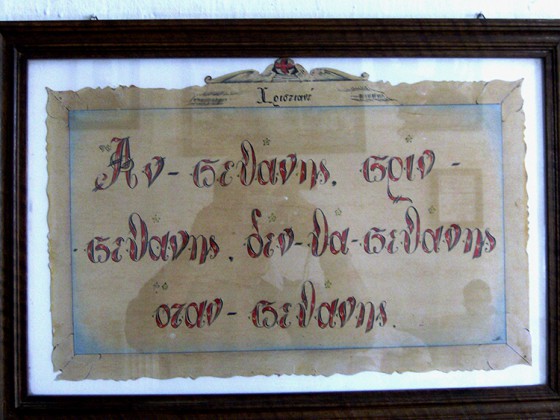 Χριστιανέ
"Αν-πεθάνης. πρὶν-
πεθάνης. δὲν-θὰ-πεθάνης
ὅταν-πεθάνης.